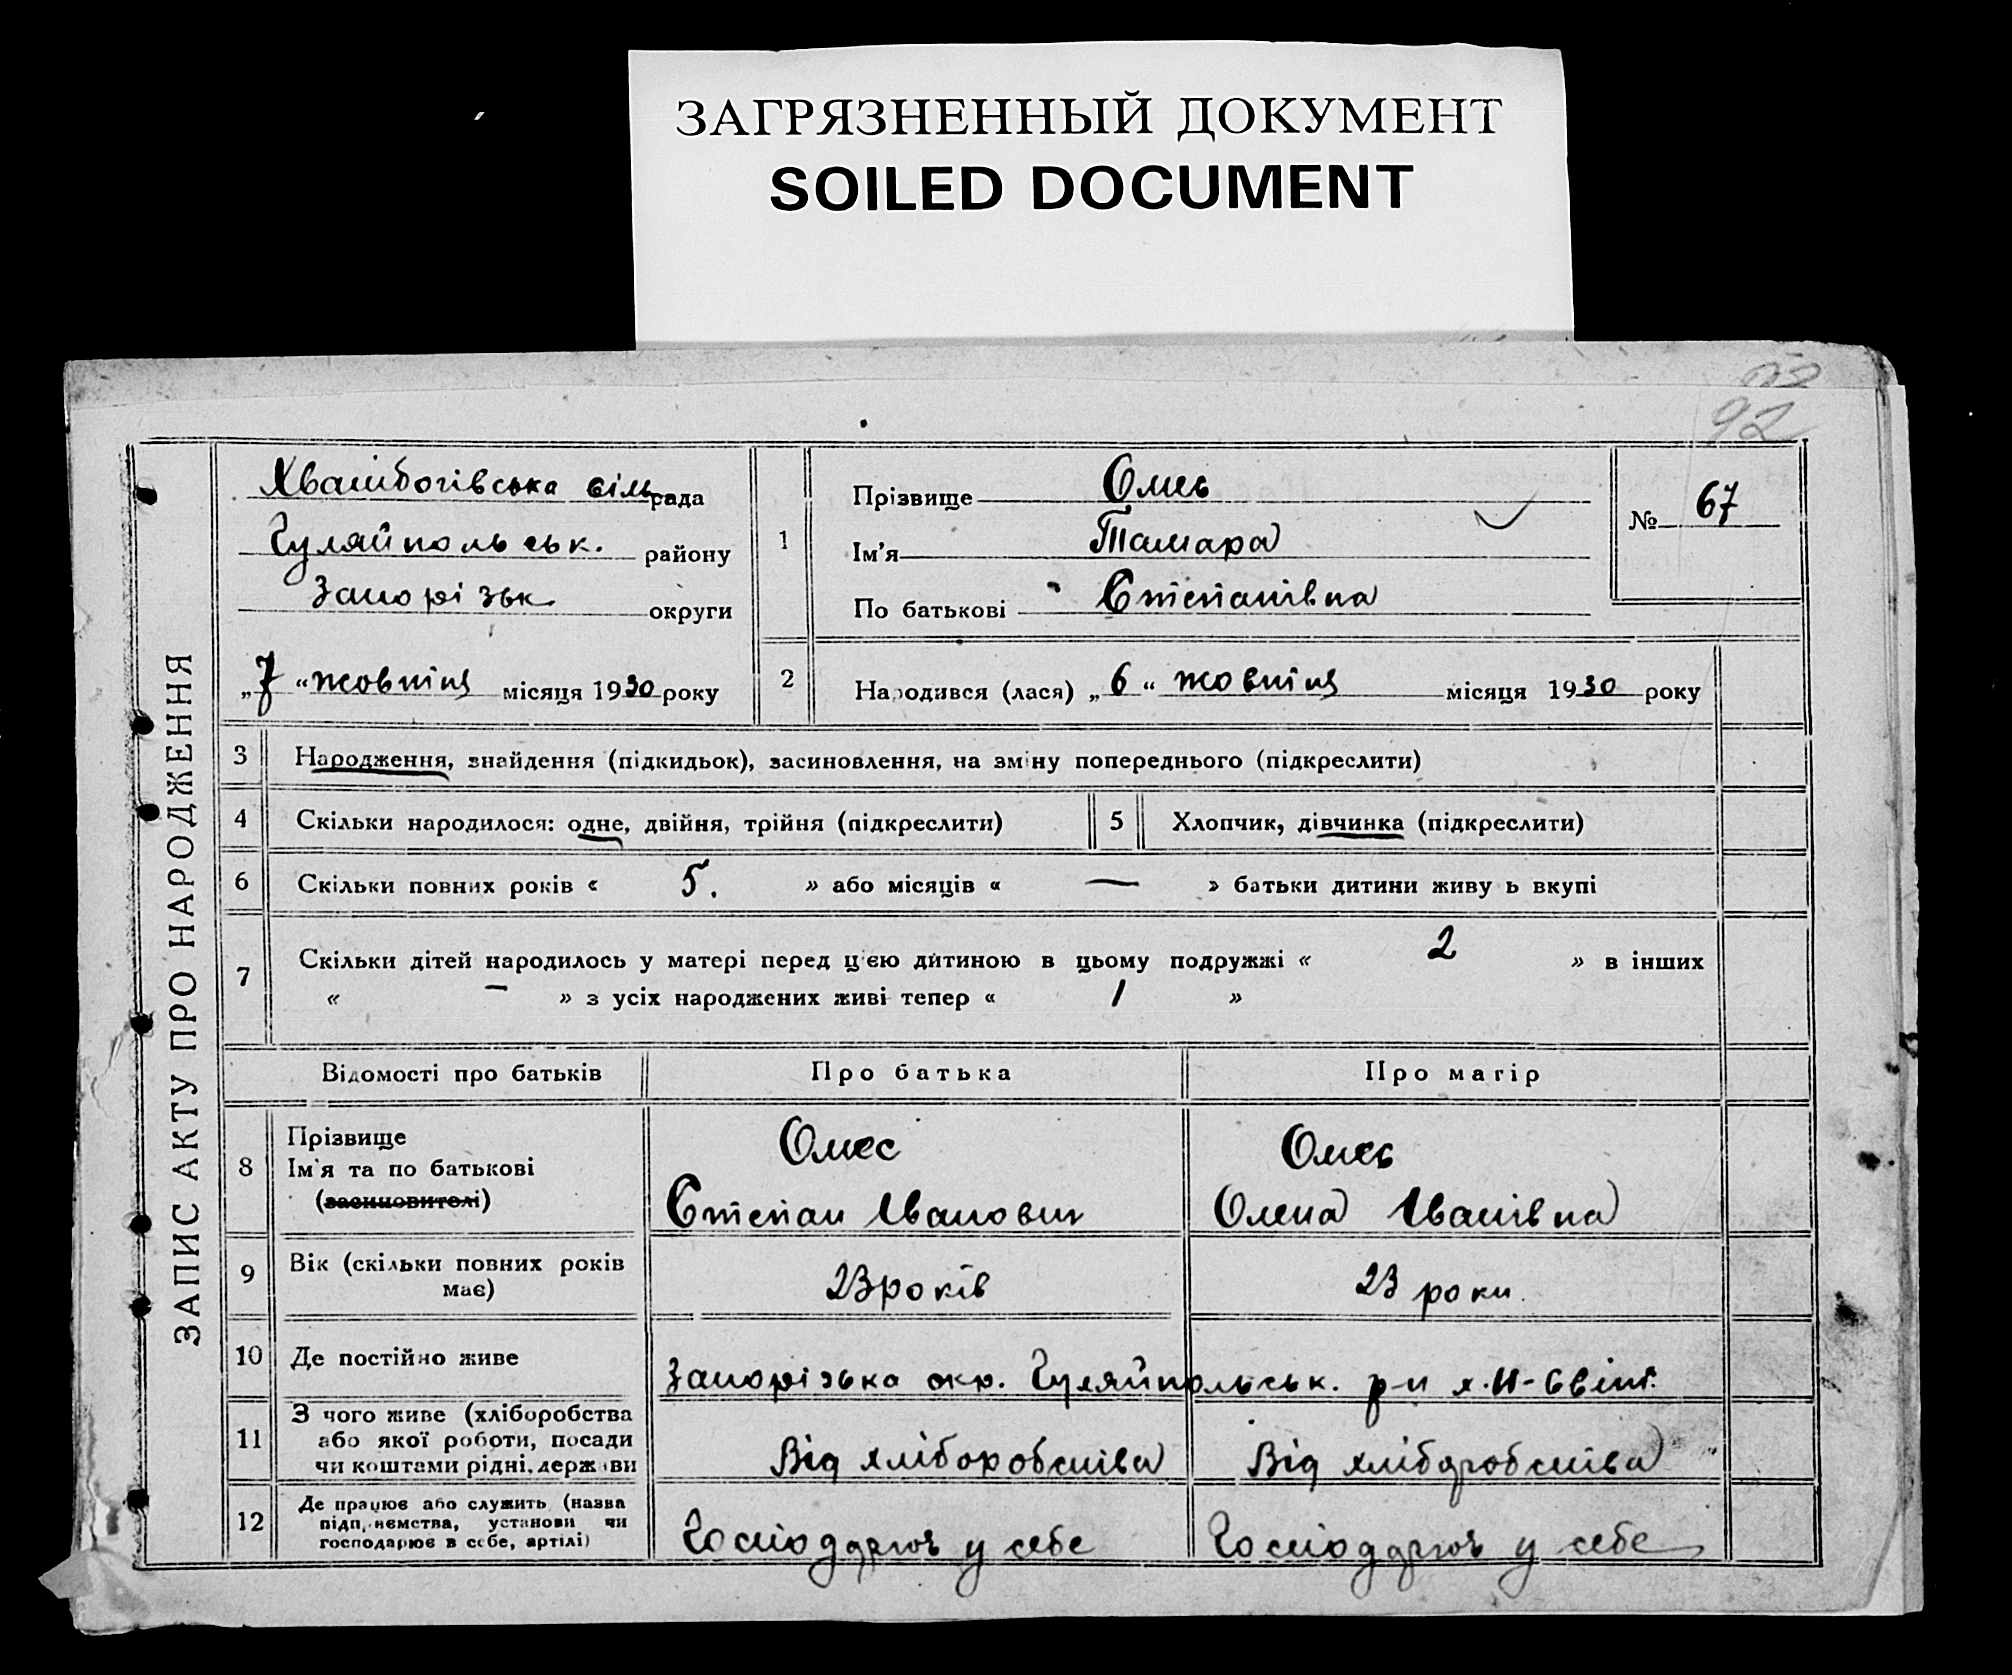 ЗАГРЯЗНЕННЫЙ ДОКУМЕНТ
SOILED DOCUMENT
92
ЗАПИС АКТУ ПРО НАРОДЖЕННЯ
сільрада
Гуляйпольськ. району
Запорізьк округи
„7“ жовтня місяця 1930 року
1
Прізвище Омес
Ім'я Тамара
По батькові Степанівна
№ 67
2 Народився (лася) „6“ жовтня місяця 1930 року
3 Народження, знайдення (підкидьок), засиновлення, на зміну попереднього (підкреслити)
4 Скільки народилося: одне, двійня, трійня (підкреслити) 5 Хлопчик, дівчинка (підкреслити)
6 Скільки повних років « 5. » або місяців « — » батьки дитини живу ь вкупі
7 Скільки дітей народилось у матері перед цією дитиною в цьому подружжі « 2 » в інших
« – » з усіх народжених живі тепер « 1 »
Відомості про батьків Про батька Про матір
8 Прізвище Омес Омес
Ім'я та по батькові
(засиновителі) Степан Іванович Олена Іванівна
9 Вік (скільки повних років
має) 23 років 23 роки
10 Де постійно живе Запорізька окр. Гуляйпольськ. р-н
11 З чого живе (хліборобства
або якої роботи, посади
чи коштами рідні, держави Від хліборобства Від хліборобства
12 Де працює або служить (назва
підприємства, установи чи
господарює в себе, артілі) Господарює у себе Господарює у себе